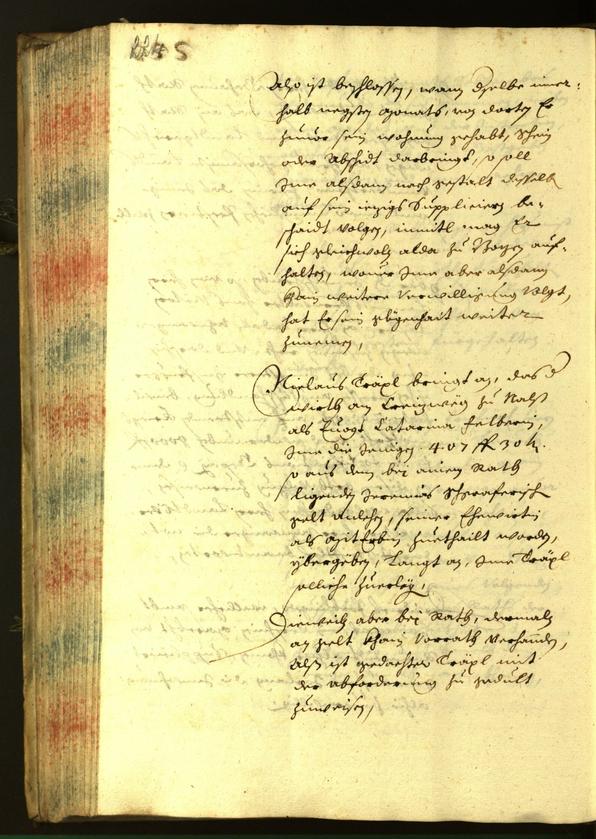 Also ist beschlossen, wann derselbe inner-
halb negsten Monats, von dorten Er
zuuor sein wohnung gehabt, schein
oder Abschidt darbringt, so soll
Ime alsdann nach gestalt desselben
auf sein ieziges Supplicieren be-
schaidt volgen, inmitl mag Er
sich gleichwolen alda zu Bozen auf-
halten, wouer Ime aber alsdann
khain weitere verwilligung volgt,
hat Er sein gelegenhait weiter
zunemen,
Niclaus Träxl bringt an, das d
wirth am Creizweg zu Nalss
als Vuogt Catarina Felberin,
Ime die ienigen 407 fl 30 k.
so aus dem bei ainem Rath
ligenden Jeremias Schraferisch
gelt anlehen, seiner Ehewirtin
als Miterbin zuethailt worden,
ybergeben, Langt an, Ime Träxl
solliche zuerlegen,
Dieweiln aber bei Rath, dermaln
an gelt khain vorrath verhanden,
Also ist gedachter Träxl mit
der abforderung zu gedult
zuweisen,